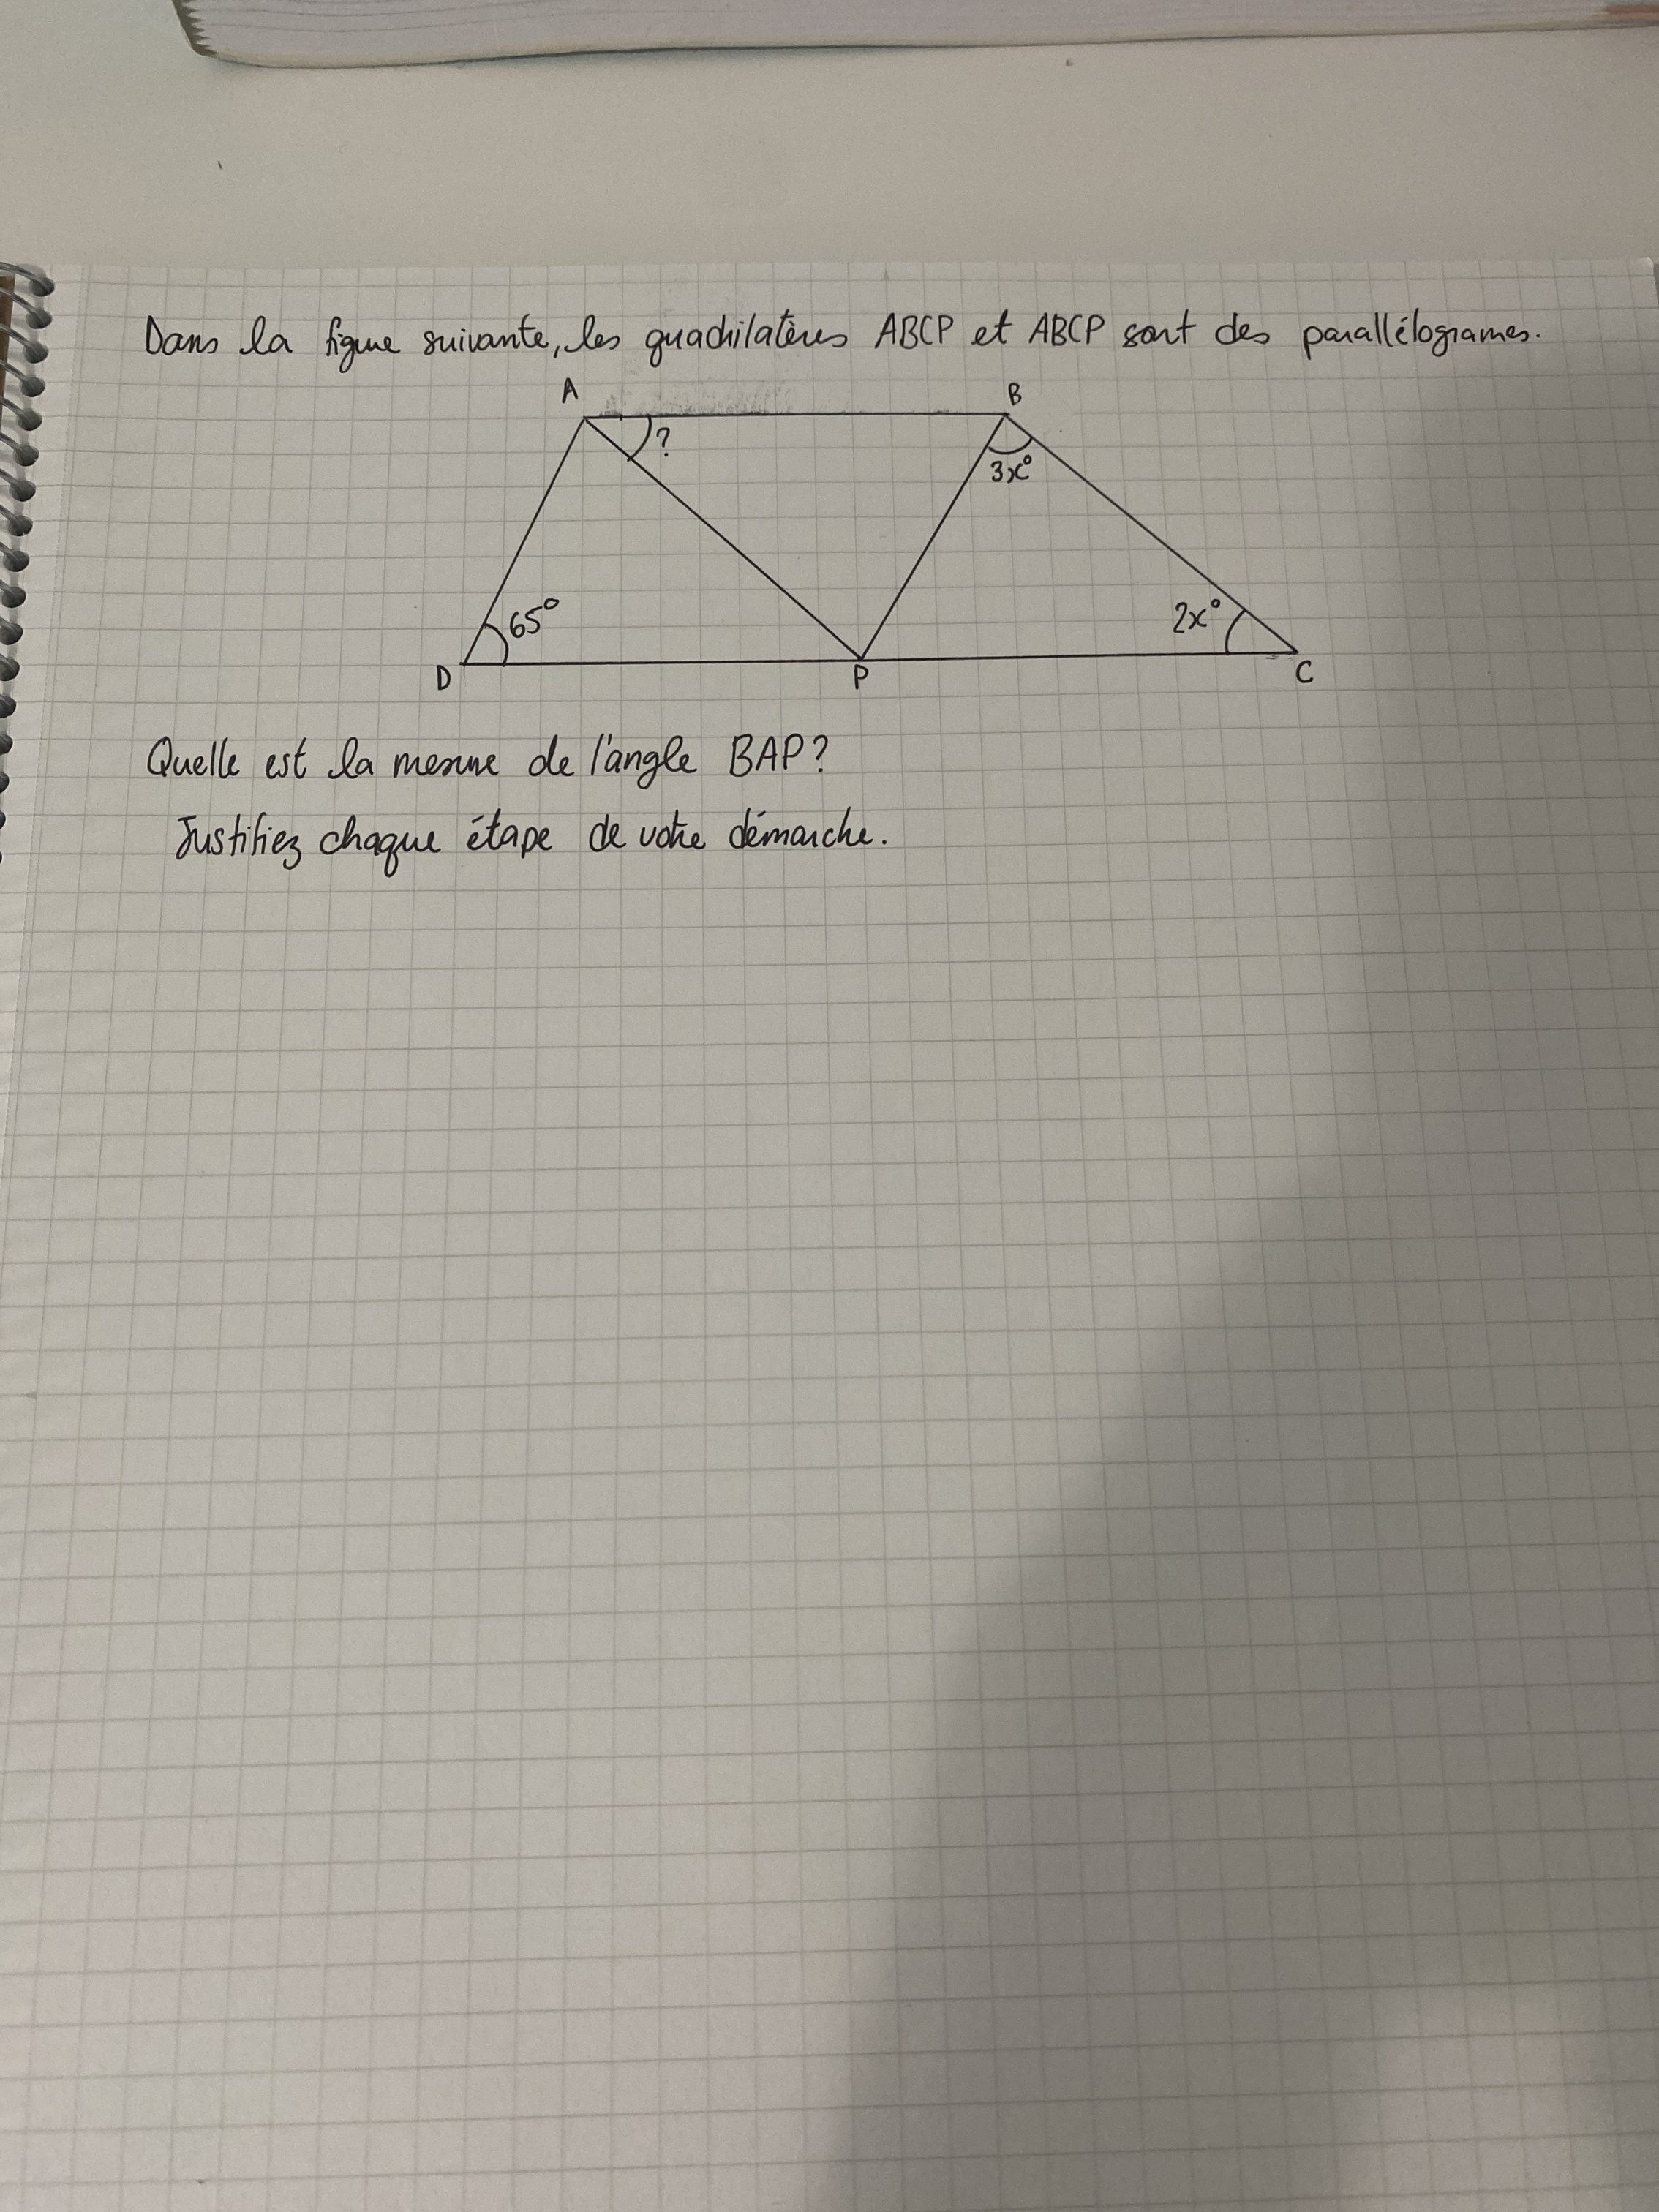 Dans la figure suivante, les quadrilatères ABCP et ABCP sont des parallélogrames.
A B
?
3x°
65°
2x°
D P C
Quelle est la mesure de l'angle BAP?
Justifiez chaque étape de votre démarche.